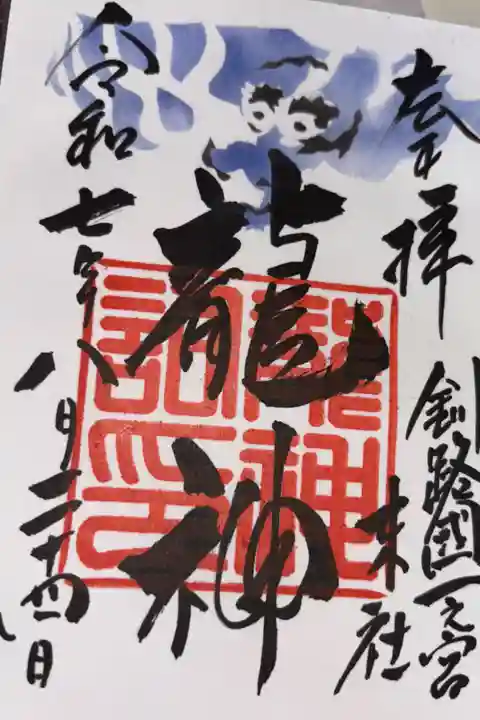 奉拝
釧路國一之宮
末社
龍神
龍神
記印
令和七年八月二十四日